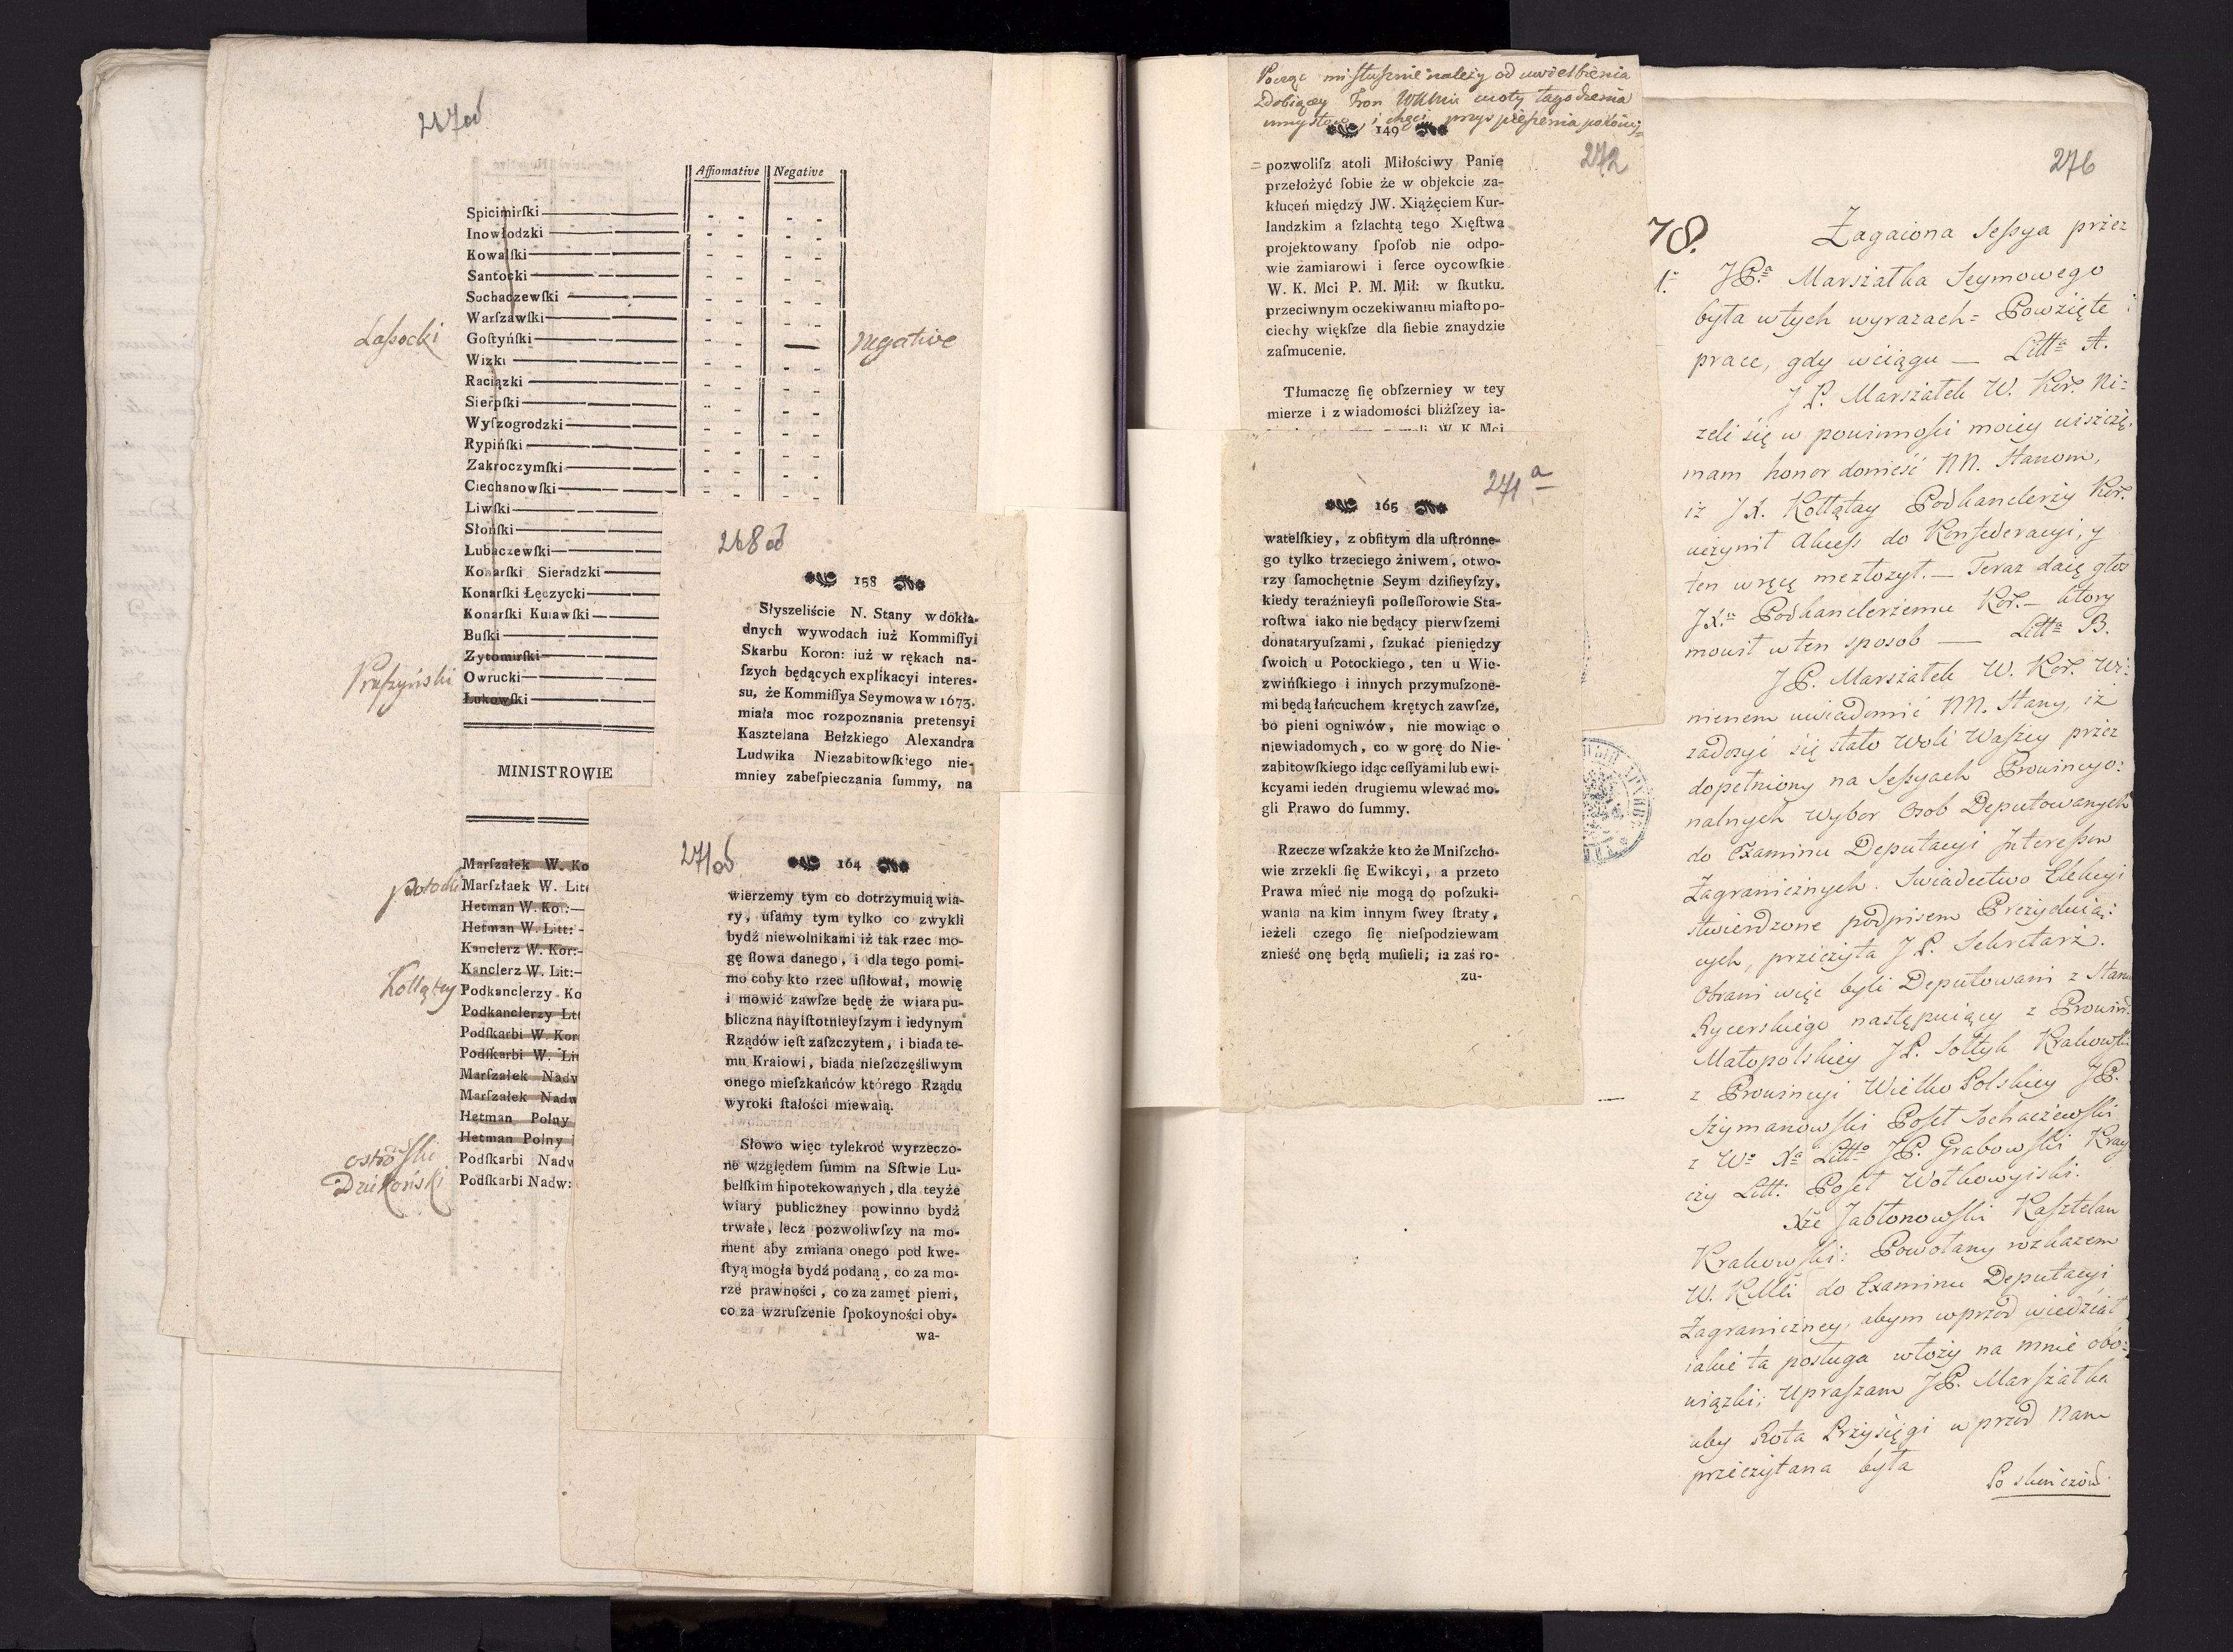 247od
Affiomative Negative
Spicimirſki
Inowłodzki
Kowalſki
Santocki
Sochaczewſki
Warſzawſki
Laſsocki Goſtyńſki negative
Wizki
Raciązki
Sierpſki
Wyſzogrodzki
Rypińſki
Zakroczymſki
Ciechanowſki
Liwſki
Słońſki
Lubaczewſki
Konarſki Sieradzki
Konarſki Łęczycki
Konarſki Kuiawſki
Buſki
Zytomirſki
Pruſzyński Owrucki
Łukowſki
MINISTROWIE
Marſzałek W. Ko
Potocki Marſzłaek W. Lit
Hetman W. Kor:
Hetman W. Litt:
Kanclerz W. Kor:
Kanclerz W. Lit:
Kołłątay Podkanclerzy Ko
Podkanclerzy Lt
Podſkarbi W. Kor
Podſkarbi W. Lit
Marſzałek Nadw
Marſzałek Nadw
Hetman Polny
Hetman Polny
Ostrowſki Podſkarbi Nadw
Dziekoński Podſkarbi Nadw:
268od
158
Słyszeliście N. Stany w dokła-
dnych wywodach iuż Kommiſſyi
Skarbu Koron: iuż w rękach na-
ſzych będących explikacyi interes-
su, że Kommiſſya Seymowa w 1673.
miała moc rozpoznania pretensyi
Kasztelana Bełzkiego Alexandra
Ludwika Niezabitowſkiego nie-
mniey zabeſpieczania ſummy, na
271od
164
wierzemy tym co dotrzymuią wia-
ry, uſamy tym tylko co zwykli
bydź niewolnikami iż tak rzec mo-
gę ſłowa danego, i dla tego pomi-
mo coby kto rzec uſiłował, mowię
i mowić zawſze będę że wiara pu-
bliczna nayiſtotnieyſzym i iedynym
Rządów ieſt zaſzczytem, i biada te-
mu Kraiowi, biada nieſzczęśliwym
onego mieſzkańców którego Rządu
wyroki ſtałości miewaią.
Słowo więc tylekroć wyrzeczo-
ne względem ſumm na Sſtwie Lu-
belſkim hipotekowanych, dla teyże
wiary publiczney powinno bydź
trwałe, lecz pozwoliwſzy na mo-
ment aby zmiana onego pod kwe-
ſtyą mogła bydź podaną, co za mo-
rze prawności, co za zamęt pieni,
co za wzruſzenie ſpokoyności oby-
wa-
Pociąg mi ſłuſznie należy od uwielbienia
zdobiącey Tron WKMci cnoty łagodzenia
umysłow, i chęci przyspieſzenia pokoiu;
149
272
pozwoliſz atoli Miłościwy Panię
przełożyć ſobie że w objekcie za-
kłuceń między JW. Xiążęciem Kur-
landzkim a ſzlachtą tego Xięſtwa
projektowany ſpoſob nie odpo-
wie zamiarowi i ſerce oycowſkie
W. K. Mci P. M. Mił: w ſkutku
przeciwnym oczekiwaniu miaſto po-
ciechy więkſze dla ſiebie znaydzie
zaſmucenie.
Tłumaczę ſię obſzerniey w tey
mierze i z wiadomości bliżſzey ia-
271a
165
watelſkiey, z obſitym dla uſtronne-
go tylko trzeciego żniwem, otwo-
rzy ſamochętnie Seym dziſieyſzy,
kiedy teraźnieyſi poſſeſſorowie Sta-
roſtwa iako nie będący pierwſzemi
donataryuſzami, ſzukać pieniędzy
ſwoich u Potockiego, ten u Wie-
zwińſkiego i innych przymuſzone-
mi będą łańcuchem krętych zawſze,
bo pieni ogniwów, nie mowiąc o
niewiadomych, co w gorę do Nie-
zabitowſkiego idąc ceſſyami lub ewi-
kcyami ieden drugiemu wlewać mo-
gli Prawo do ſummy.
Rzecze wſzakże kto że Mniſzcho-
wie zrzekli ſię Ewikcyi, a przeto
Prawa mieć nie mogą do poſzuki-
wania na kim innym ſwey ſtraty,
ieżeli czego ſię nieſpodziewam
znieść onę będą muſieli; ia zaś ro-
zu-
276
78. Zagaiona Seſsya przez
1. JPa Marszałka Seymowego
była w tych wyrazach = Powzięte
prace, gdy w ciągu — Litta A.
J P. Marszałek W. Kor. Ni-
zeli się w powinności moiey uiszczę,
mam honor donieść NN. Stanom,
iż JX. Kołłątay Podkanclerzy Kor.
uczynił akceſs do Konfederacyi, y
ten w ręcę me złożył. — Teraz daię głos
JXu Podkanclerzemu Kor. — ktory
mowił w ten sposob — Litta B.
J P. Marszałek W. Kor. Wi-
nienem uwiadomić NN. Stany, iż
zadosyć się stało Woli Waſzey przez
dopełniony na Seſsyach Prowincyo:
nalnych Wybor Osob Deputowanych
do Examinu Deputacyi Intereſsow
Zagranicznych. Swiadectwo Elekcyi
stwierdzone podpisem Prezyduią:
cych, przeczyta J P. Sekretarz.
Obrani więc byli Deputowani z Stanu
Rycerskiego następuiący z Prowin.
Małopolskiey JP. Sołtyk Krakowſki
z Prowincyi Wielko Polskiey JP.
Szymanowſki Poſeł Sochaczewſki
z Wo Xa Litto JP. Grabowſki Kray
czy Litt: Poſeł Wołkowyiski.
Xże Jabłonowſki Kaſztelan
Krakowſki: Powołany rozkazem
W. KMci do Examinu Deputacyi
Zagraniczney, abym wprzod wiedział
iakie ta posługa włoży na mnie obo:
wiązki; Upraſzam JP. Marſzałka
aby Rota Przysięgi wprzod Nam
przeczytana była
Po skończon